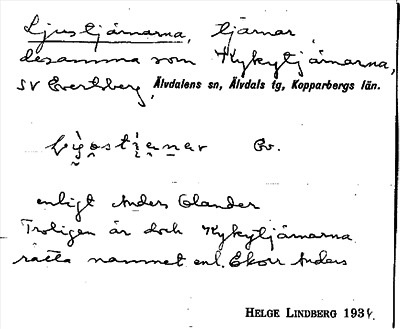 Ljustjärnarna, tjärnar,
desamma som Kykytjärnarna,
SV Evertsberg, Älvdalens sn, Älvdals tg, Kopparbergs län.
enligt Anders Olander
Troligen är dock Kykytjärnarna
rätta namnet enl. Ekorr Anders
HELGE LINDBERG 193